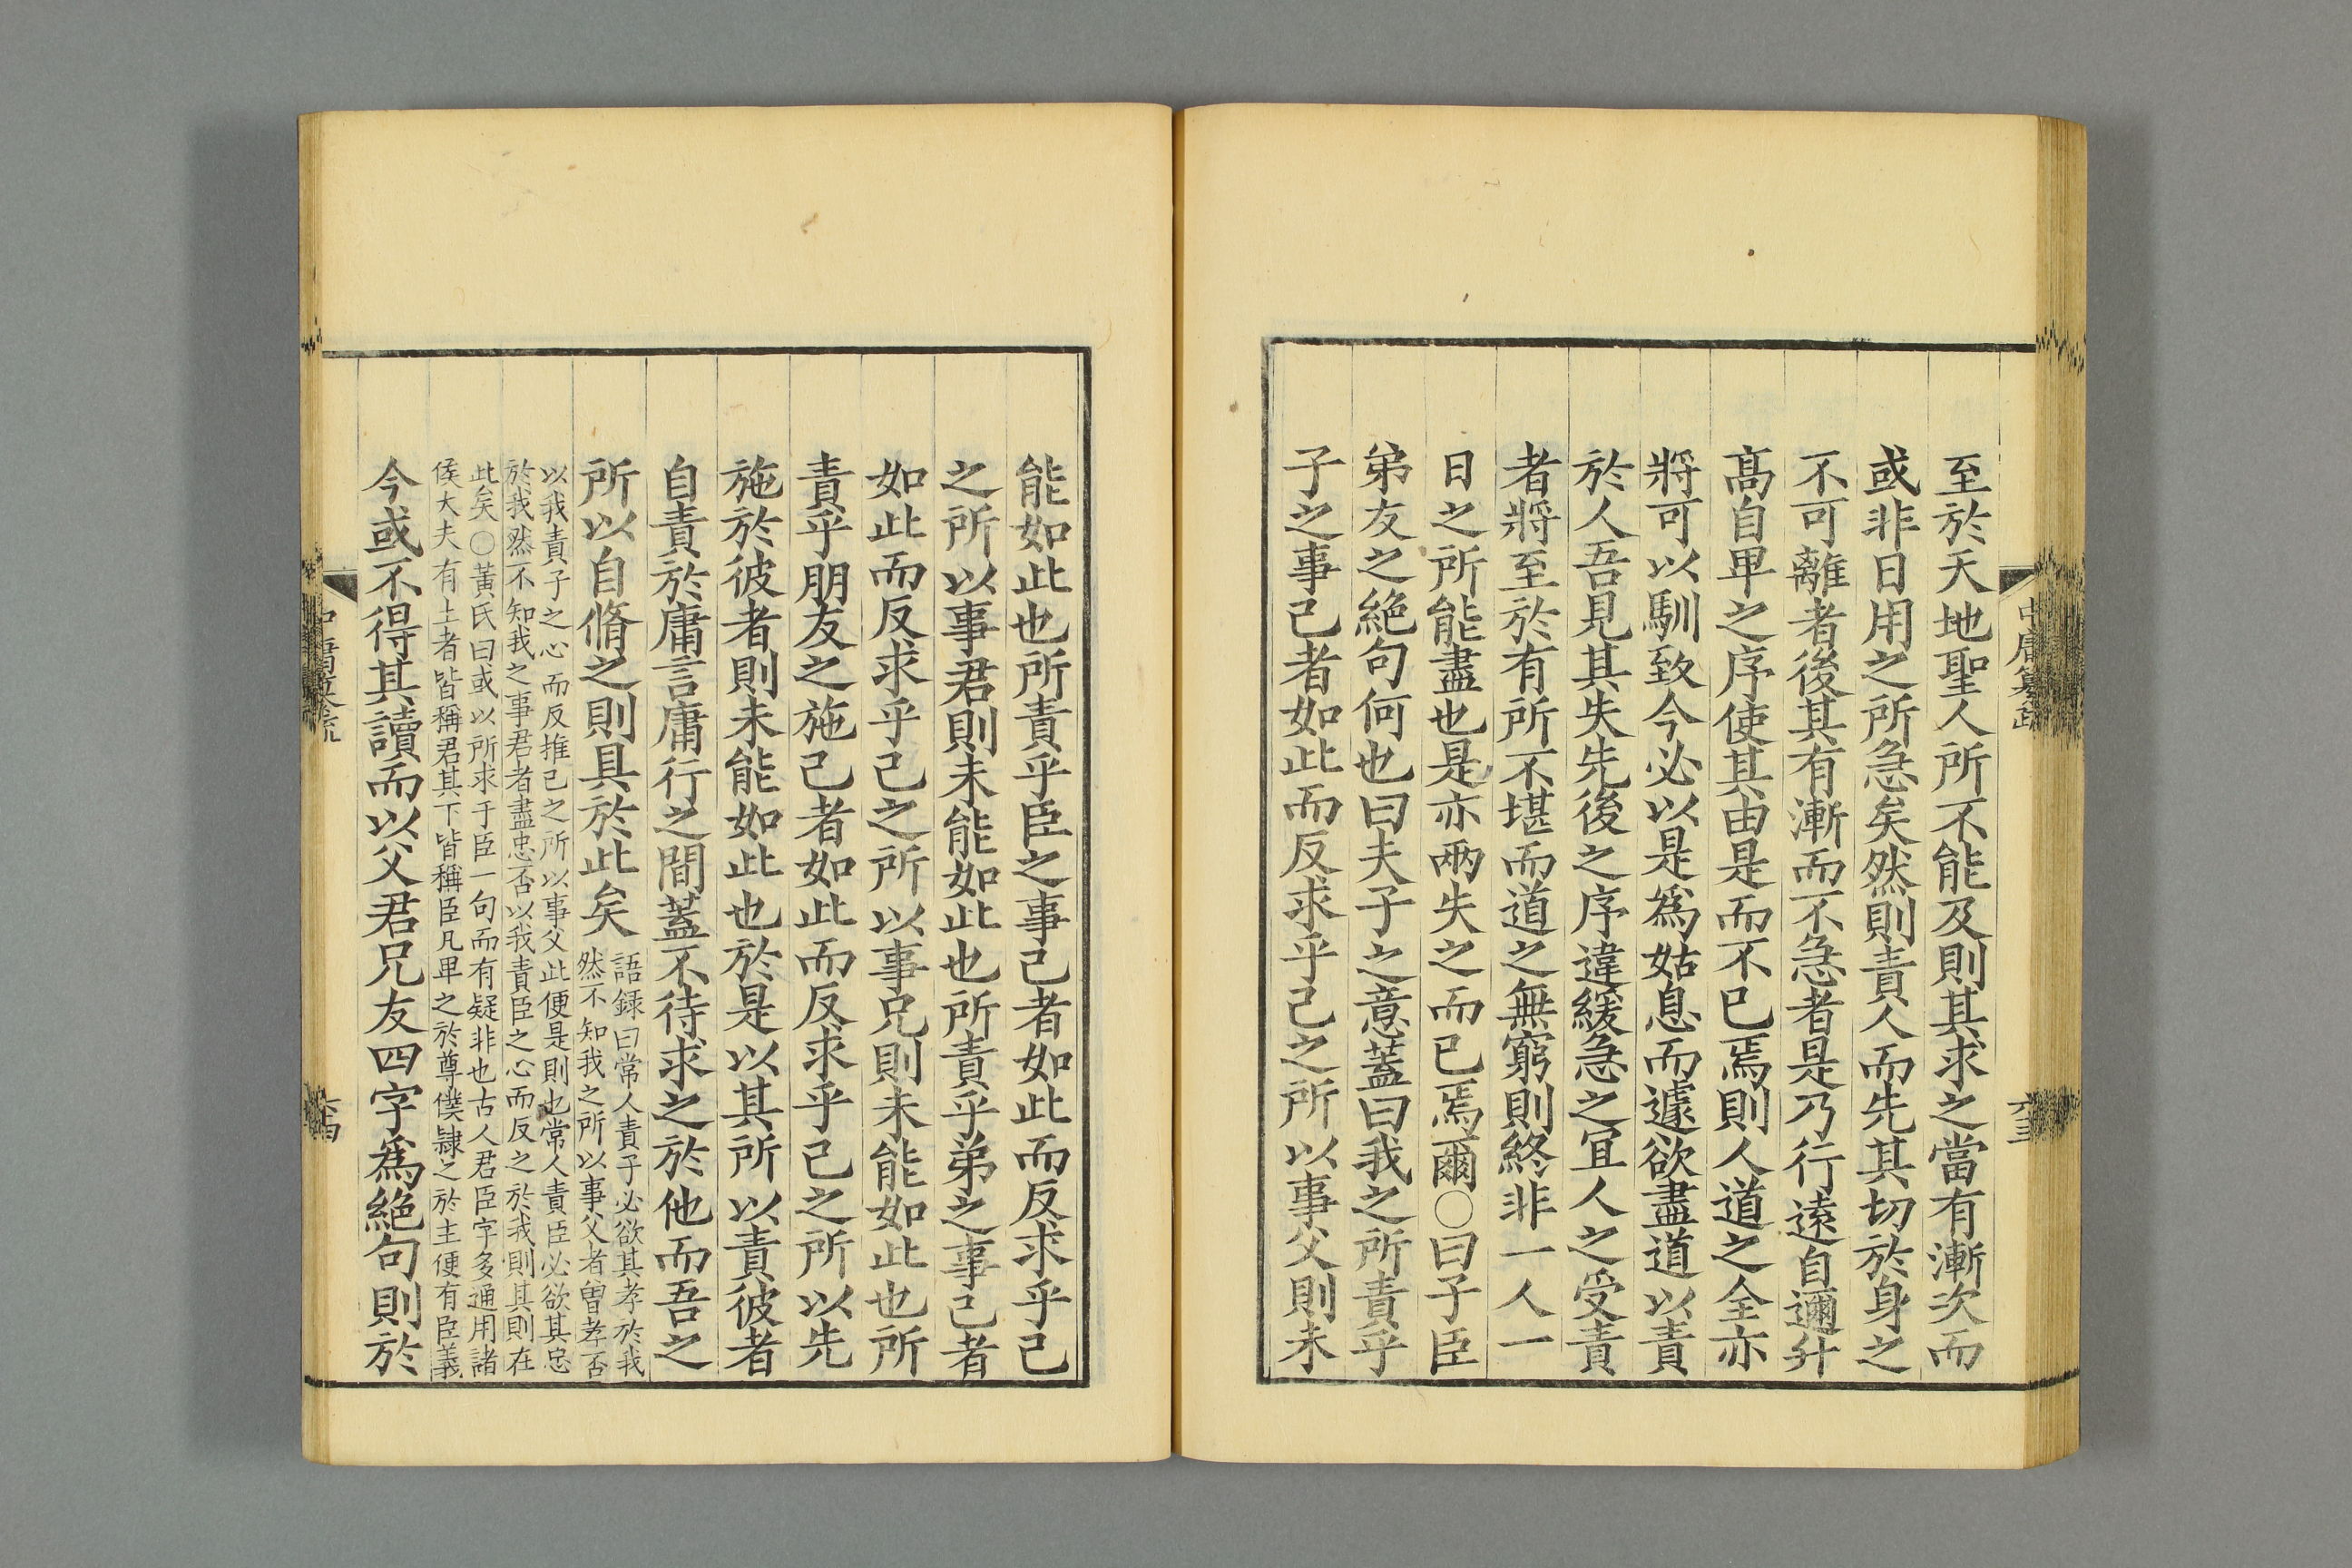 至於天地聖人所不能及則其求之當有漸次而
或非日用之所急矣然則責人而先其切於身之
不可離者後其有漸而不急者是乃行遠自邇升
髙自卑之序使其由是而不已焉則人道之全亦
將可以馴致今必以是爲姑息而遽欲盡道以責
於人吾見其失先後之序違緩急之宜人之受責
者將至於有所不堪而道之無窮則終非一人一
日之所能盡也是亦兩失之而已焉爾○曰子臣
弟友之絶句何也曰夫子之意蓋曰我之所責乎
子之事己者如此而反求乎己之所以事父則未
中庸纂疏
六十三
能如此也所責乎臣之事己者如此而反求乎己
之所以事君則未能如此也所責乎弟之事己者
如此而反求乎己之所以事兄則未能如此也所
責乎朋友之施己者如此而反求乎己之所以先
施於彼者則未能如此也於是以其所以責彼者
自責於庸言庸行之間蓋不待求之於他而吾之
所以自脩之則具於此矣
語録曰常人責子必欲其孝於我
然不知我之所以事父者曽孝否
以我責子之心而反推己之所以事父此便是則也常人責臣必欲其忠
於我然不知我之事君者盡忠否以我責臣之心而反之於我則其則在
此矣○黃氏曰或以所求于臣一句而有疑非也古人君臣字多通用諸
侯大夫有土者皆稱君其下皆稱臣凡卑之於尊僕隷之於主便有臣義
今或不得其讀而以父君兄友四字爲絶句則於